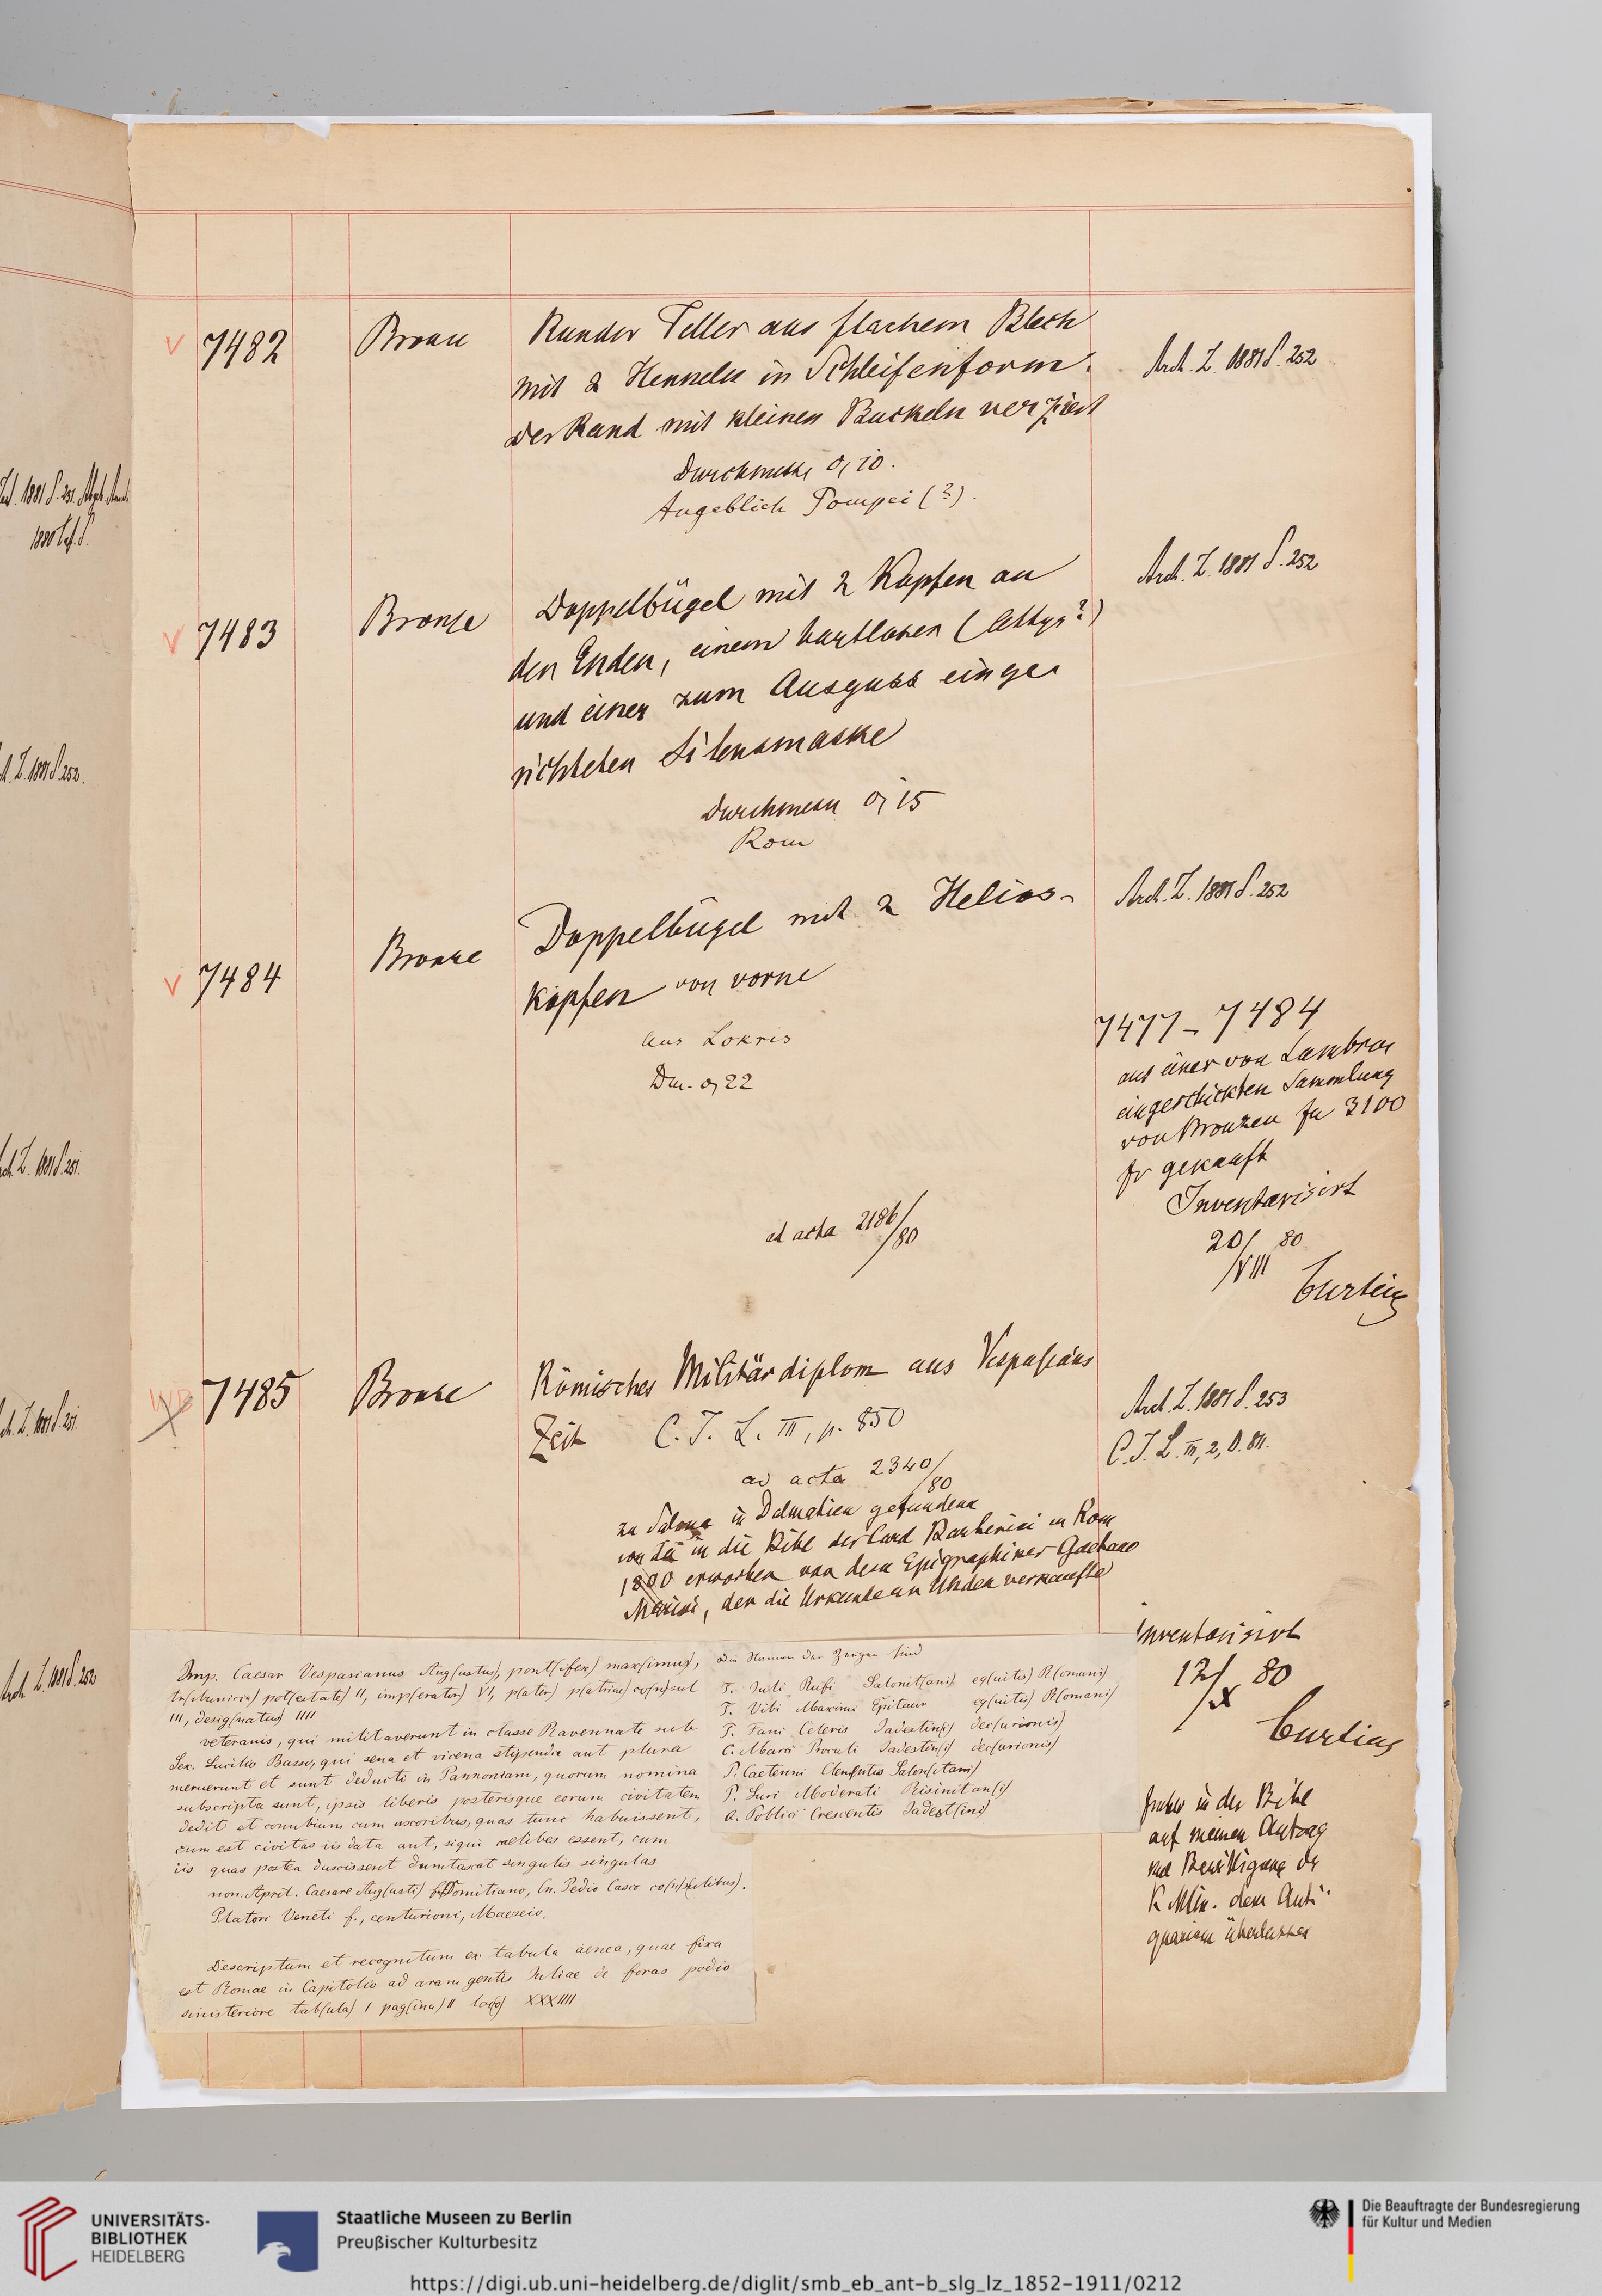 V 7482 Bronze Runder Teller aus flachem Blech
mit 2 Henkeln in Schleifenform.
Der Rand mit kleinen Buckeln verziert
Durchmess, 0,10.
Angeblich Pompei (?).
Arch. Z. 1881 S. 252
V 7483 Bronze Doppelbügel mit 2 Kopfen an
den Enden, einem bartlosen (Attys?)
und einer zum Ausguss einge-
richteten Silensmaske
Durchmess 0,15
Rom
Arch. Z. 1881 S. 252
V 7484 Bronze Doppelbügel mit 2 Helios-
köpfen von vorne
aus Lokris
Dm. 0,22
Arch. Z. 1881 S. 252
7477-7484
aus einer von Lambros
eingeschickten Sammlung
von Bronzen für 3100
fr gekauft
Inventarisirt
20/VIII 80
Curtius
ad acta 2186/80
7485 Bronze Römisches Militärdiplom aus Vespasians
Zeit C. I. L. III, p. 850
ad acta 2340/80
zu Salona in Dalmatien gefunden
von da in die Bibl der Card Barberini in Rom
1800 erworben von dem Epigraphiker Gaetano
Marini, der die Urkunde an Uhden verkaufte
Arch. Z. 1881 S. 253
C. I. L. III, 2,
Inventarisirt
12/X 80
Curtius
früher in der Bibl
auf meinen Antrag
und Bewilligung des
K. Min. dem Anti-
quarium überlassen
Imp. Caesar Vespasianus Aug(ustus), pont(ifex) max(imus),
tr(ibunicia) pot(estate) II, imp(erator) VI, p(ater) p(atriae) co(n)sul
III, desig(natus) IIII
veteranis, qui militaverunt in classe Ravennate sub
Sex. Lucilio Basso, qui sena et vicena stipendia aut plura
meruerunt et sunt deducti in Pannoniam, quorum nomina
subscripta sunt, ipsis liberis posterisque eorum civitatem
dedit et conubium cum uxoribus, quas tunc habuissent,
cum est civitas iis data aut, siqui caelibes essent, cum
iis quas postea duxissent dumtaxat singulis singulas
non. April. Caesare Aug(usti) f. Domitiano, Cn. Pedio Casco co(n)s(ulibus).
Platori Veneti f., centurioni, Maezeio.
Descriptum et recognitum ex tabula aenea, quae fixa
est Romae in Capitolio ad aram gentis Iuliae de foras podio
sinisteriore tab(ula) I pag(ina) II loc(o) XXXIIII
Die Namen der Zeugen sind
T. Iuli Rufi Salonit(ani) eq(uitis) R(omani)
T. Vibi Maximi Epitaur eq(uitis) R(omani)
T. Fani Celeris Iadestin(i) dec(urionis)
C. Marci Proculi Iadestin(i) dec(urionis)
P. Caetenni Clementis Salon(itani)
P. Luri Moderati Risinitan(i)
Q. Poblici Crescentis Iadest(ini)
Arch. Z. 1881 S. 252
UNIVERSITÄTS-
BIBLIOTHEK
HEIDELBERG
Staatliche Museen zu Berlin
Preußischer Kulturbesitz
Die Beauftragte der Bundesregierung
für Kultur und Medien
https://digi.ub.uni-heidelberg.de/diglit/smb_eb_ant-b_slg_lz_1852-1911/0212